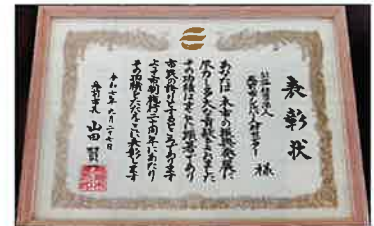 表彰状
公益社団法人
シルバー人材センター 様
あなたは本市の振興発展に
尽力し多大な貢献をされました
その功績はまことに顕著であり
市民の誇りとするところであります
よって市制施行二十周年にあたり
その功績をたたえここに表彰します
令和七年 月二十七日
市長 山田